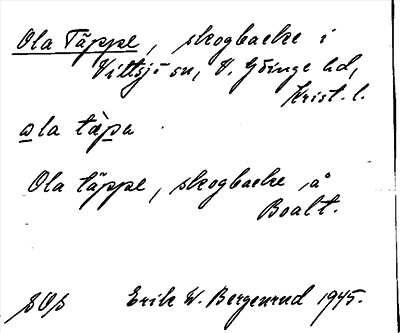 Ola Täppe, skogbacke i
Vittsjö sn, V. Göinge hd,
Krist. l.
ola täpa
Ola täppe, skogbacke, å
Boalt.
Erik W. Bergenrud 1945.